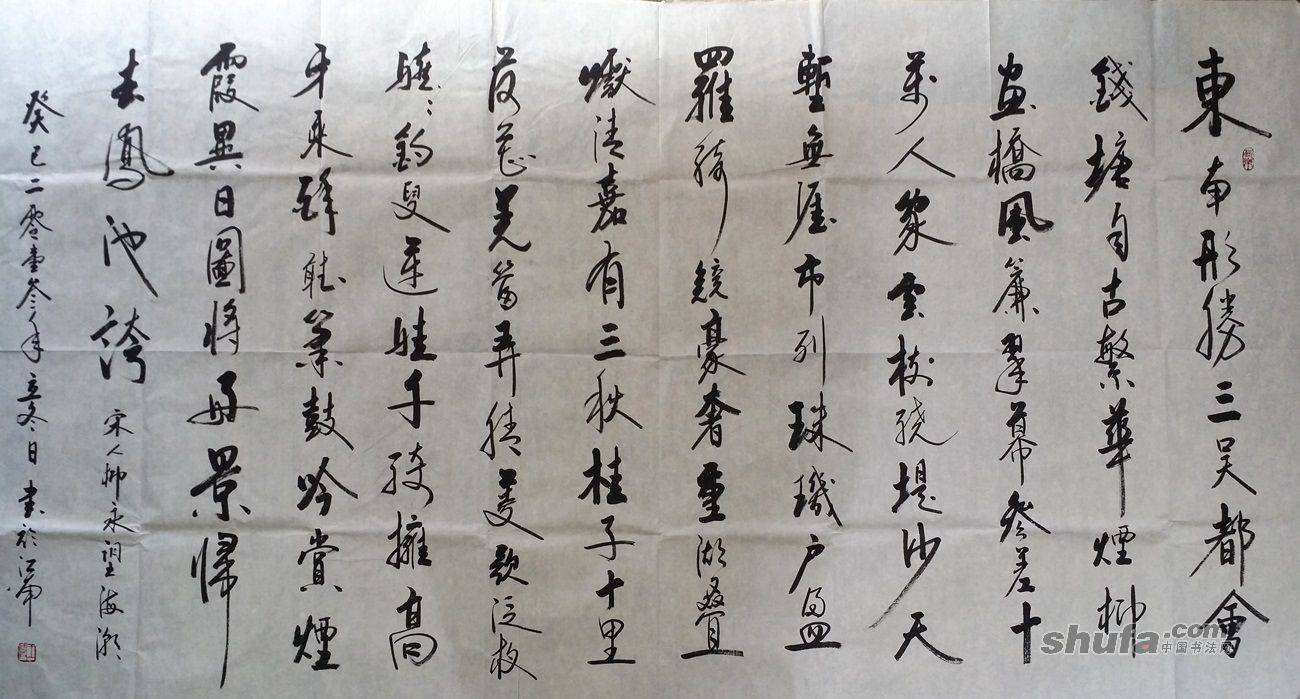 東南形勝三吴都會
錢塘自古繁華煙柳
畫橋風簾翠幕參差十
萬人家雲樹繞堤沙天
塹無涯市列珠璣户盈
羅綺競豪奢重湖疊
巘清嘉有三秋桂子十里
荷花羌管弄晴菱歌泛夜
嬉〻釣叟蓮娃千騎擁高
牙乘醉聽簫鼓吟賞煙
霞異日圖將好景歸
去鳳池誇 宋人柳永望海潮
癸巳二零壹叁年立冬日書於江
shufa.com
中国书法网